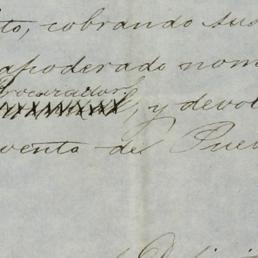 to, cobrando sus
apoderado nom
procurador
, y devol
vento de Pue